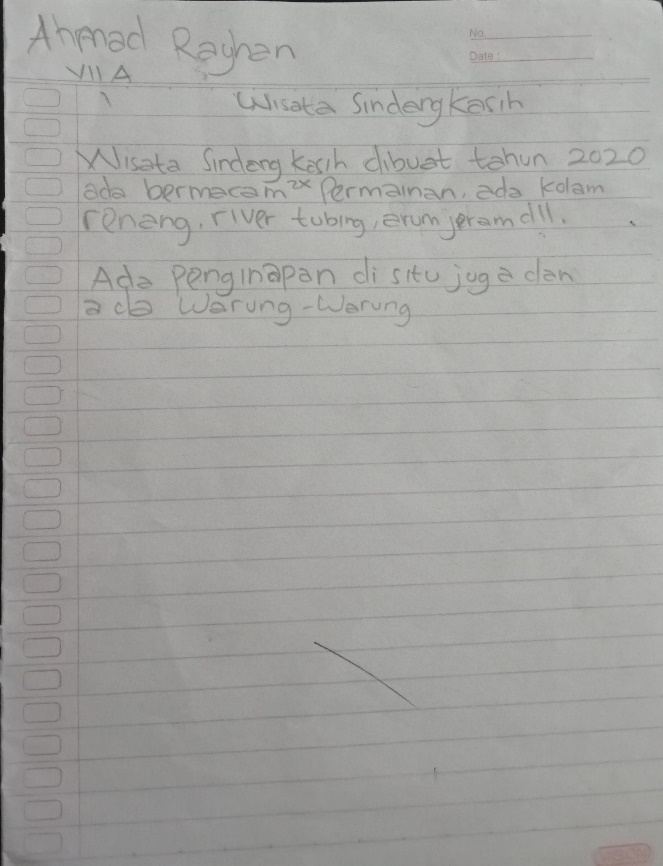 Ahmad Rayhan
No.
Date :
VII A
Wisata Sindangkasih
Wisata Sindangkasih dibuat tahun 2020
ada bermacam2x Permainan, ada kolam
renang, river tubing, arum jeram dll.
Ada Penginapan di situ juga dan
ada Warung-Warung